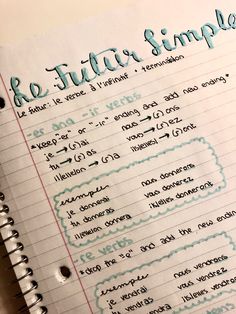 Le Futur Simple
Le futur: le verbe à l'infinitif + terminaison
-er and -ir verbs
*keep "-er" or "-ir" ending and add new ending*
je → (r)ai nous → (r)ons
tu → (r)as vous → (r)ez
il/elle/on → (r)a ils/elles → (r)ont
exemples
je donnerai nous donnerons
tu donneras vous donnerez
il/elle/on donnera ils/elles donneront
-re verbs
*drop the "e" and add the new ending
exemples
je vendrai nous vendrons
tu vendras vous vendrez